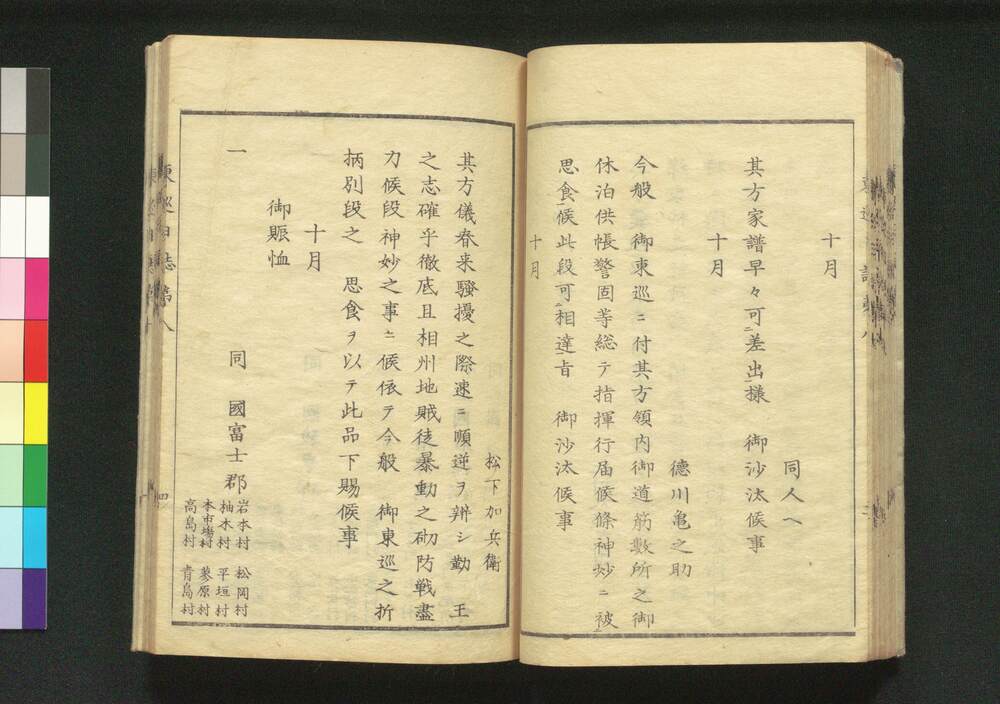 十月
同人ヘ
其方家譜早々可ニ差出一様　御沙汰候事
十月
德川亀之助
今般　御東巡ニ付其方領内御道筋数所之御
休泊供帳警固等総テ指揮行届候條神妙ニ被ニ
思食一候此段可ニ相達一旨　御沙汰候事
十月
松下加兵衛
其方儀春来騒擾之際速ニ順逆ヲ辨シ勤　王
之志確乎徹底且相州地賊徒暴動之砌防戦盡
力候段神妙之事ニ候依テ今般　御東巡之折
柄別段之　思食ヲ以テ此品下賜候事
十月
御賑恤
一　同　國富士郡
岩本村　松岡村
柚木村　平垣村
本市場村　蓼原村
高島村　青島村
東巡日誌第八
四